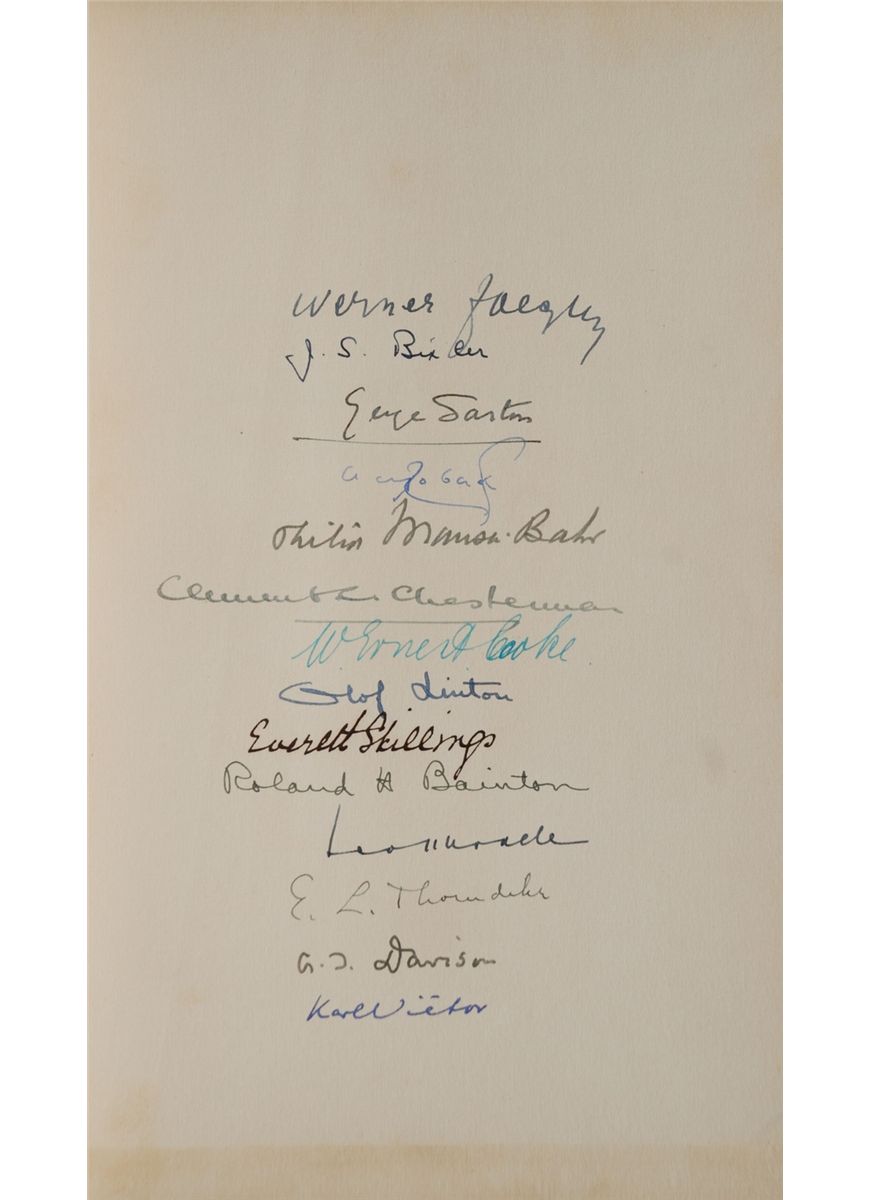 Werner Jaeger
J. S. Bixler
George Sarton
Philip Manson-Bahr
Clement C. Chesterman
W. Ernest Cooke
Olof Linton
Everett Skillings
Roland H Bainton
E. L. Thorndike
A. T. Davison
Karl Viëtor